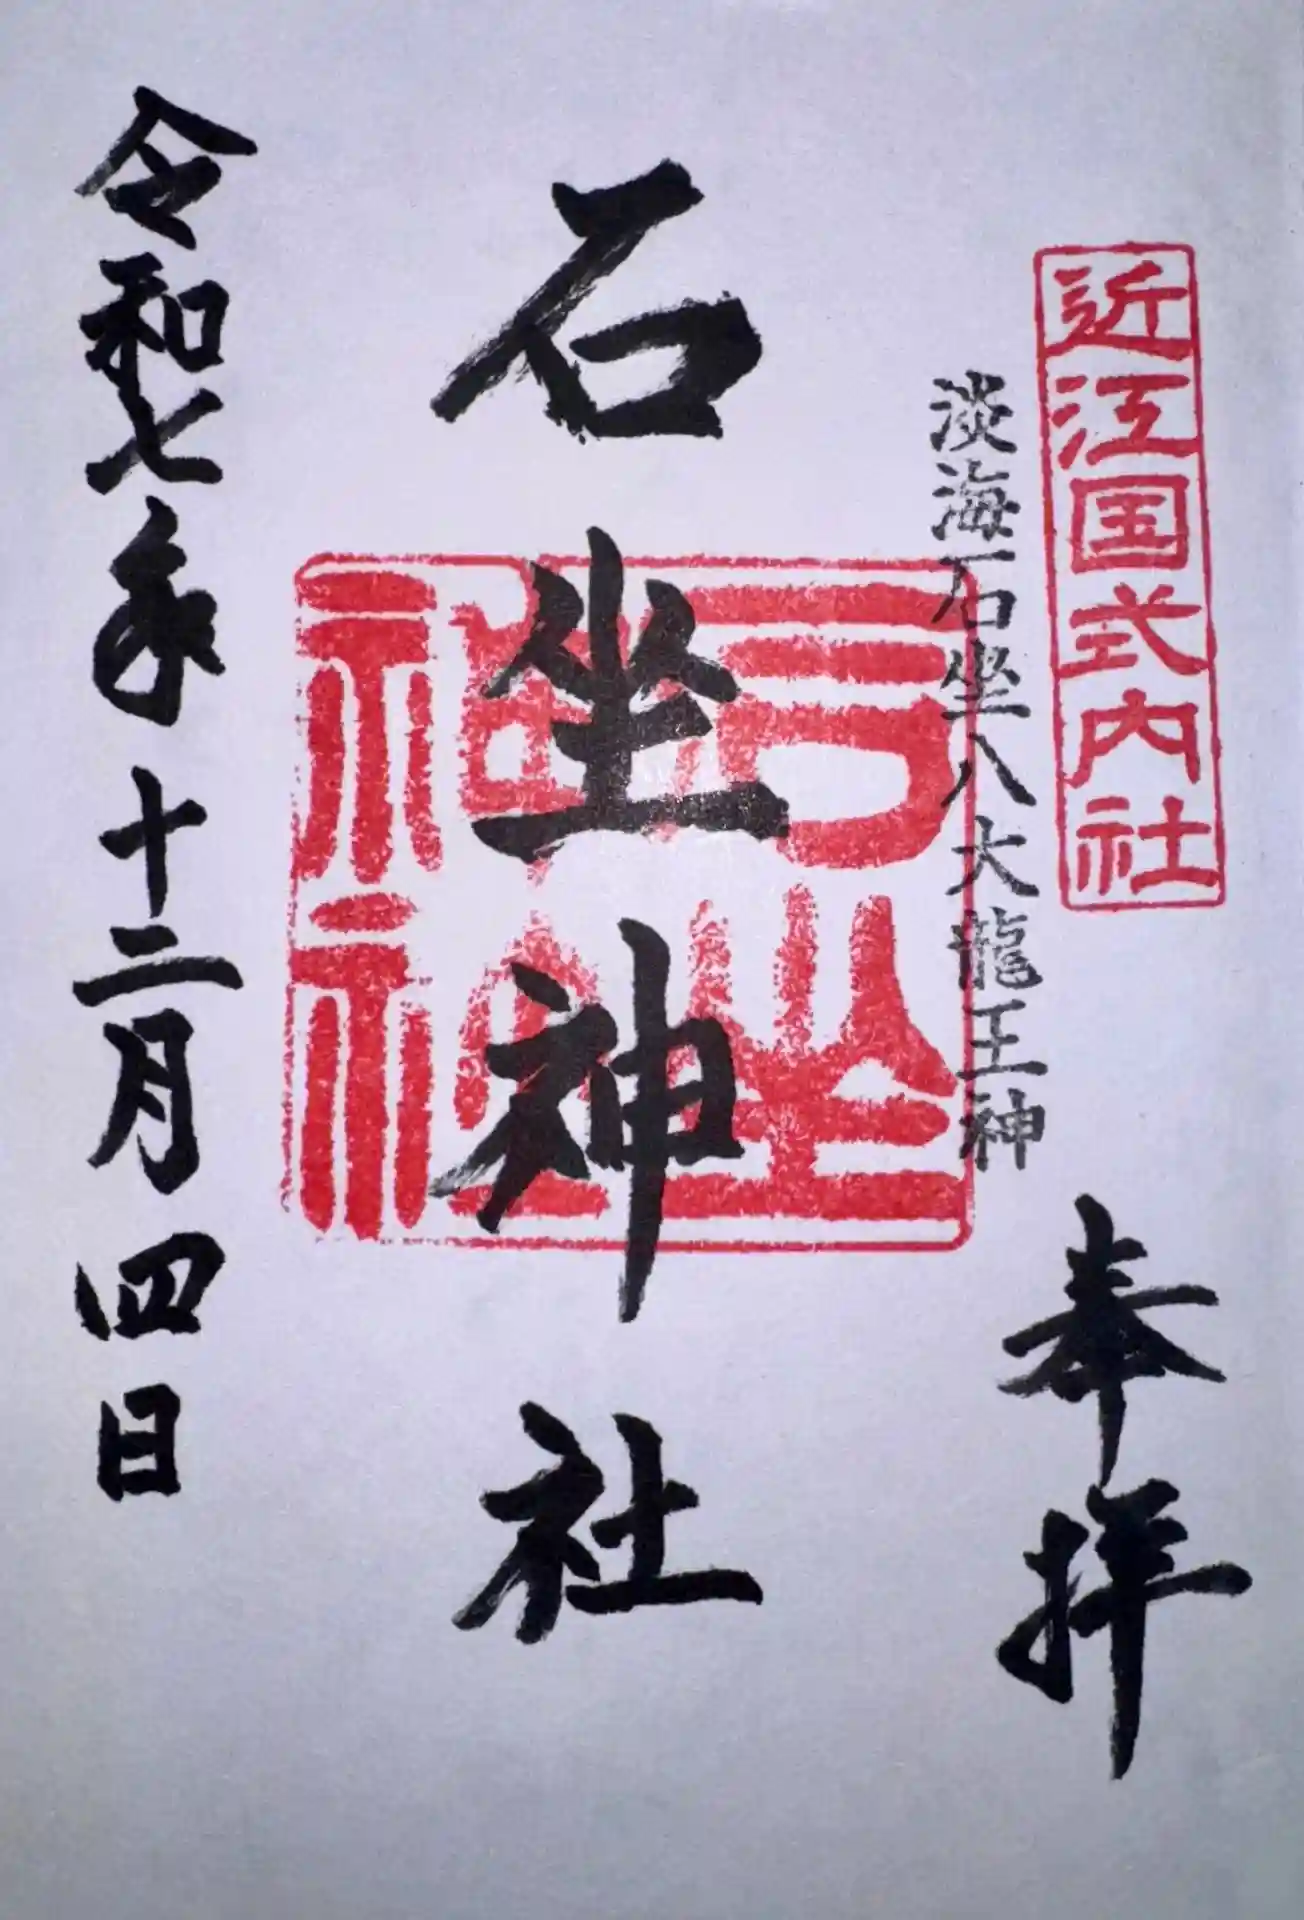 近江国式内社
淡海石坐八大龍王神
奉拝
石坐神社
石坐
神社
令和七年十二月四日